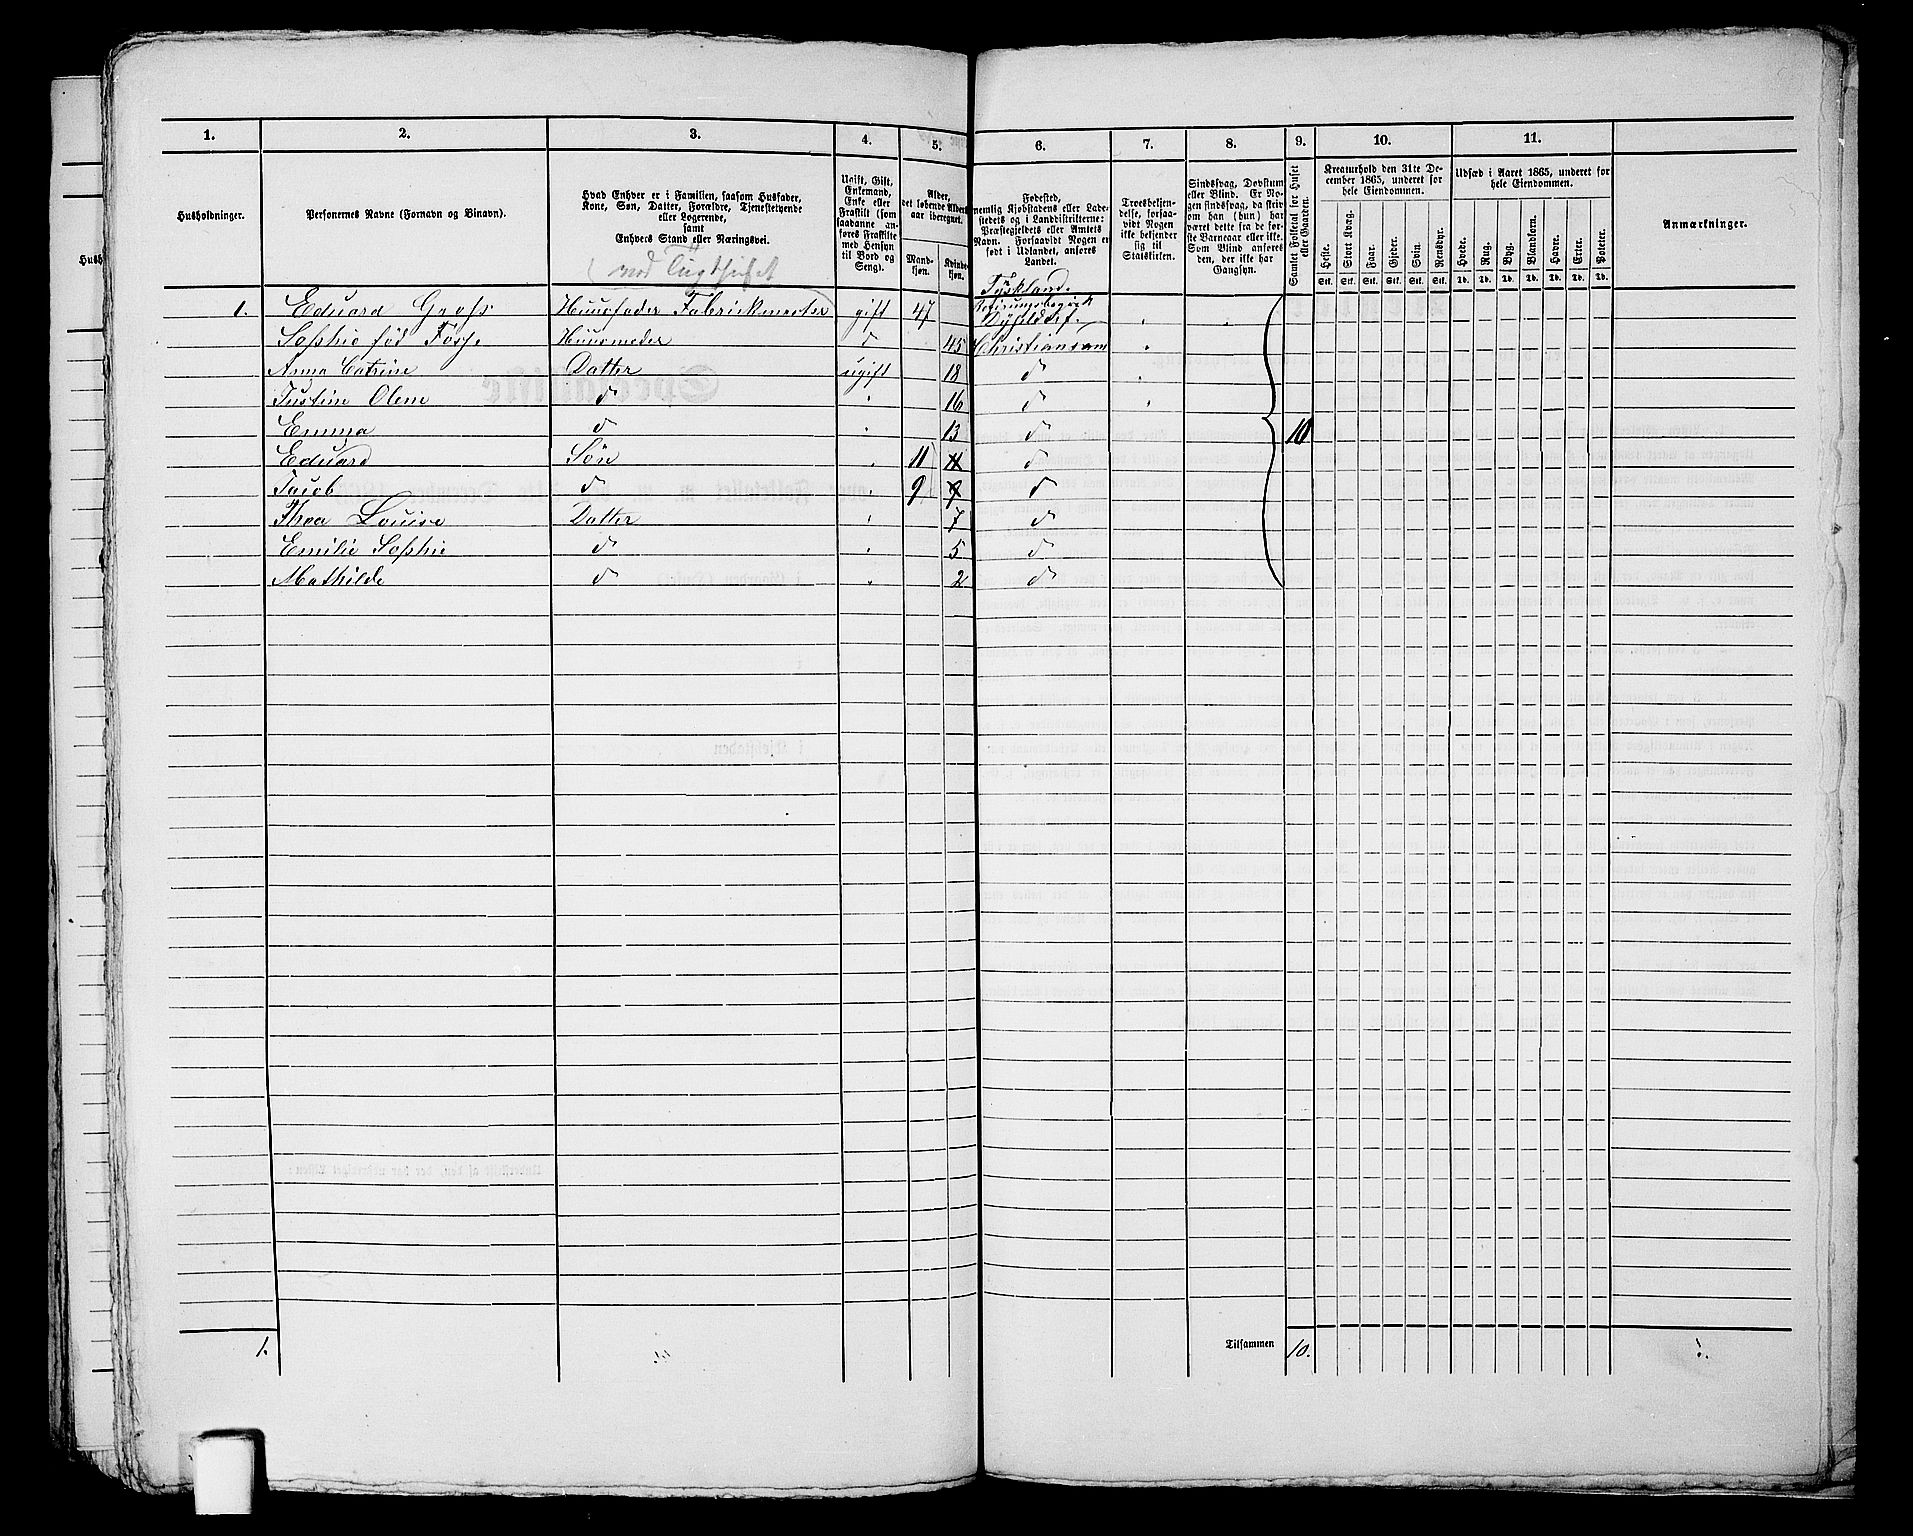 1. 2. 3. 4. 5. 6. 7. 8. 9. 10. 11.
Husholdninger.
Personernes Navne (Fornavn og Binavn).
Hvad Enhver er i Familien, saasom Husfader,
Kone, Søn, Datter, Forældre, Tjenestetyende
eller Logerende,
samt
Enhvers Stand eller Næringsvei.
ved Tugthuset
Ugift, Gift,
Enkemand,
Enke eller
Fraskilt (som
saadanne an-
føres Fraskilte
med Hensyn
til Bord og
Seng).
Alder,
det løbende Alders-
aar iberegnet.
Mand-
kjøn.
Kvinde-
kjøn.
Fødested,
nemlig Kjøbstadens eller Lade-
stedets og i Landdistrikterne:
Præstegjeldets eller Amtets
Navn. Forsaavidt Nogen er
født i Udlandet, anføres
Landet.
Troesbekjen-
delse, forsaa-
vidt Nogen
ikke bekjender
sig til
Statskirken.
Sindssvag, Døvstum
eller Blind. Er No-
gen sindssvag, da skri-
ves om han (hun) har
været dette fra de før-
ste Barneaar eller ikke.
Som Blind anføres
den, der ikke har
Gangsyn.
Samlet Folketal for Huset
eller Gaarden.
Kreaturhold den 31te De-
cember 1865, underet for
hele Eiendommen.
Heste. Stort Kvæg. Faar. Gjeder. Svin. Rensdyr.
Stk. Stk. Stk. Stk. Stk. Stk.
Udsæd i Aaret 1865, underet for
hele Eiendommen.
Hvede. Rug. Byg. Blandkorn. Havre. Erter. Poteter.
Td. Td. Td. Td. Td. Td. Td.
Anmærkninger.
Tÿskland.
1. Eduard Groß Huusfader Fabrikmester gift 47
Sophie fød Fosse Huusmoder d 45 Christiansand
Anna Catrine Datter ugift 18 d
Justine Olene d 16 d
Emma d 13 d
Eduard Søn 11 11 d
Jacob d 9 9 d
Thea Louise Datter 7 d
Emilie Sophie d 5 d
Mathilde d 2 d
10
1. Tilsammen 10.